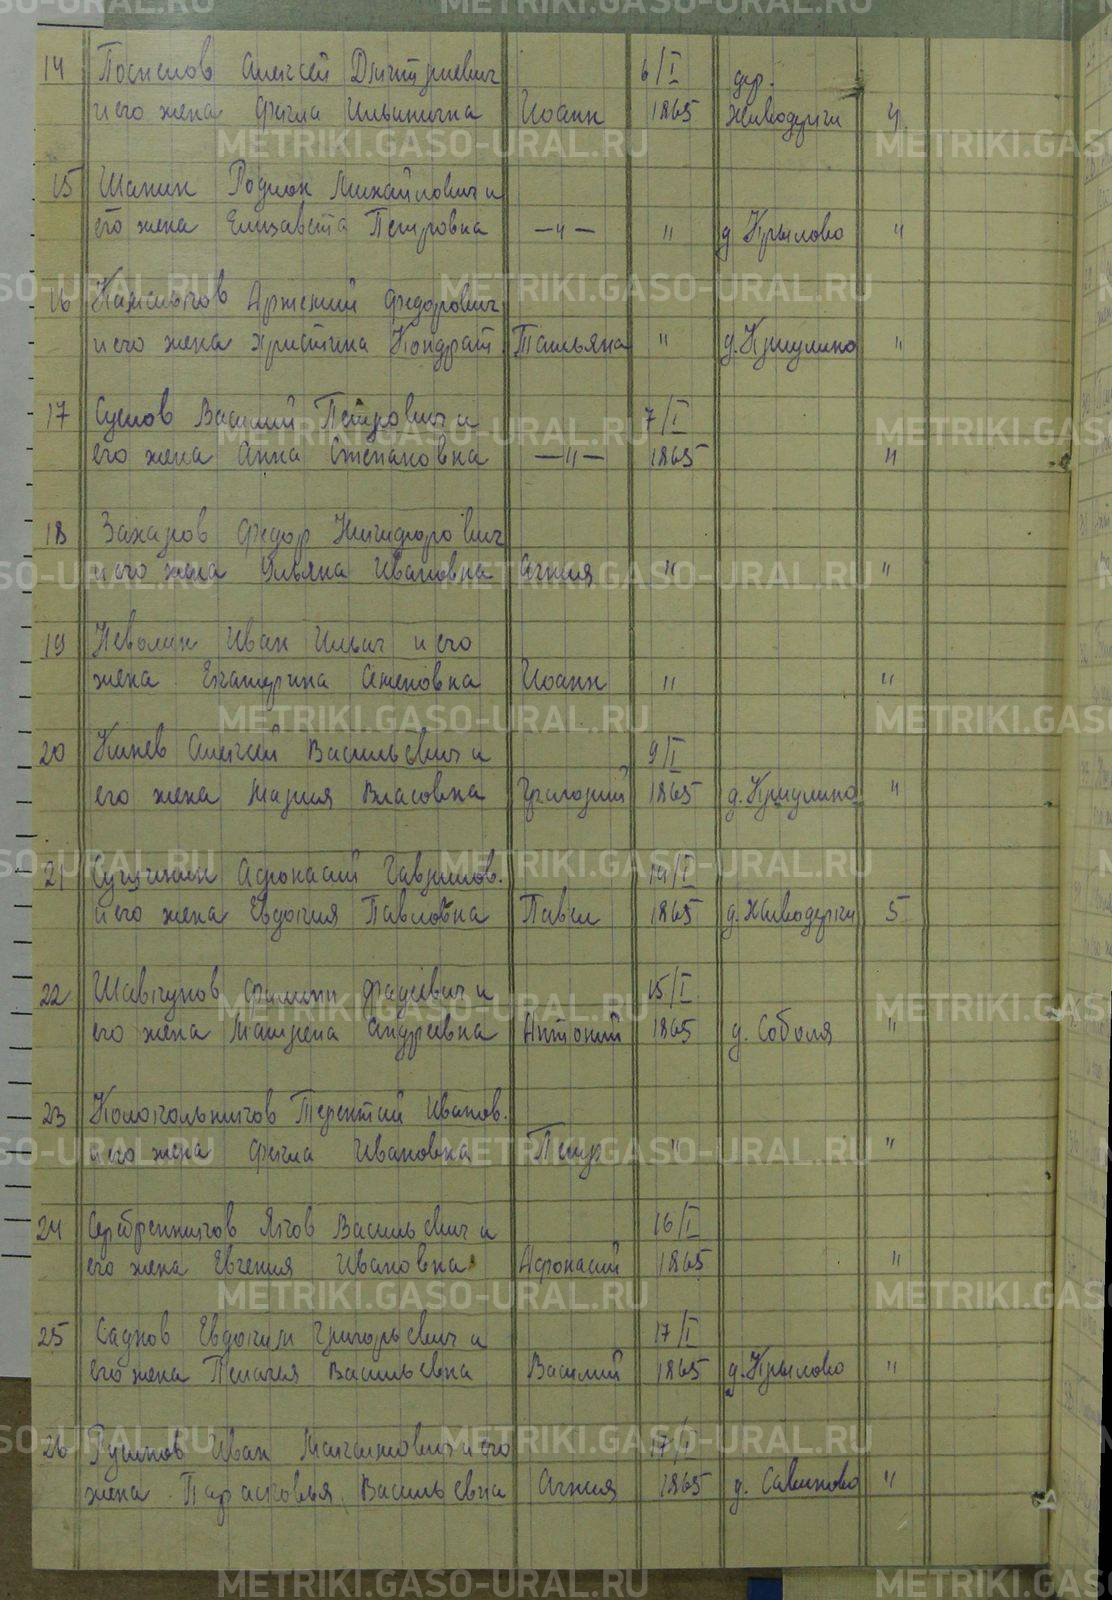 14 Поспелов Алексей Дмитриевич 6/I дер.
и его жена Фекла Ильинична Иоанн 1865 Живодерки 4
15 Шапин Родион Михайлович и
его жена Елизавета Петровна —„— „ д Крылово „
16 Артемий Федорович
и его жена Христина Кондрат. Татьяна „ д. Криулино „
17 Суслов Василий Петрович и 7/I
его жена Анна Степановна —„— 1865 „
18 Захаров Федор Никифорович
и его жена Ульяна Ивановна Агния „ „
19 Неволин Иван Ильич и его
жена Екатерина Семеновна Иоанн „ „
20 Алексей Васильевич и 9/I
его жена Мария Власовна Григорий 1865 д. Криулино „
21 Афонасий Гаврилов. 14/I
и его жена Евдокия Павловна Павел 1865 д. Живодерки 5
22 Шавкунов Филипп Фадеевич и 15/I
его жена Матрена Андреевна Антоний 1865 д. Соболя „
23 Колокольников Терентий Иванов.
и его жена Фекла Ивановна Петр „ „
24 Серебренников Яков Васильевич и 16/I
его жена Евгения Ивановна Афонасий 1865 „
25 Садков Евдоким Григорьевич и 17/I
его жена Пелагея Васильевна Василий 1865 д. Крылово „
26 Русинов Иван Максимович и его 17/I
жена Парасковья Васильевна Агния 1865 д. Савиново „
METRIKI.GASO-URAL.RU